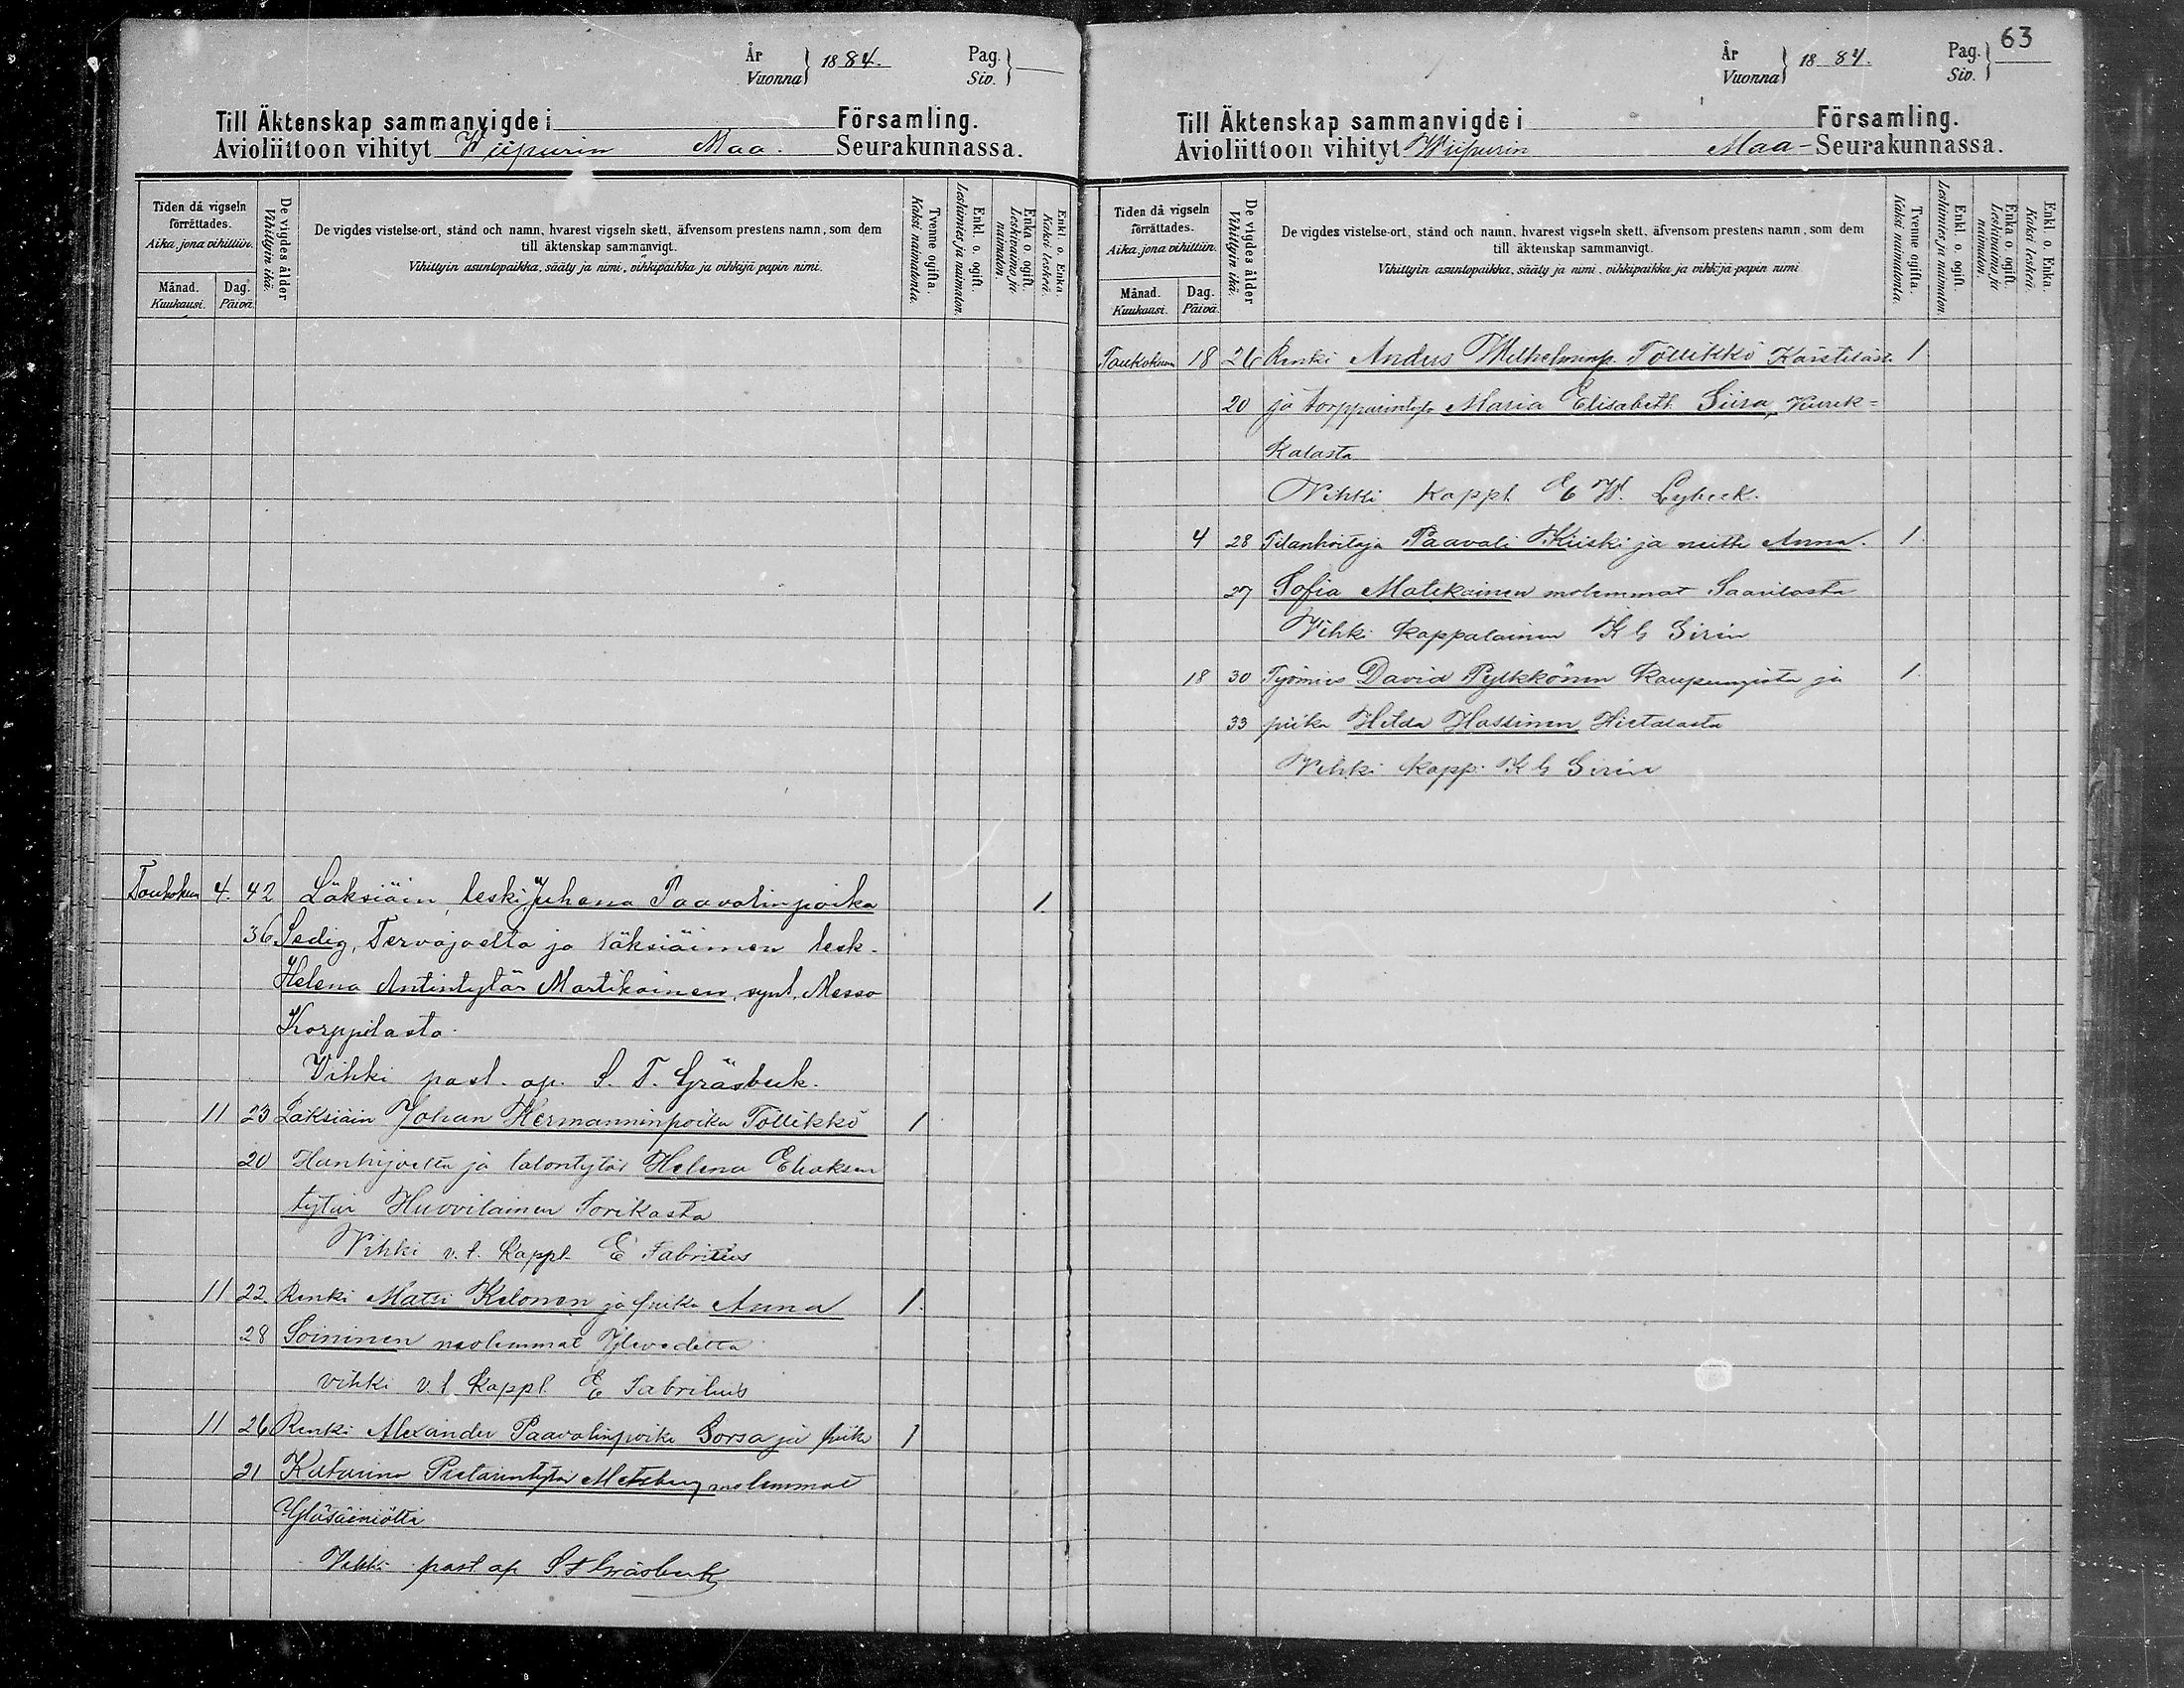 År
Vuonna } 1884.
Pag.
Siv. }
Till Äktenskap sammanvigde i Församling.
Avioliittoon vihityt Wiipurin Maa. Seurakunnassa.
Tiden då vigseln förrättades.
Aika, jona vihittiin.
Månad.
Kuukausi.
Dag.
Päivä.
De vigdes ålder
Vihittyin ikä.
De vigdes vistelse-ort, stånd och namn, hvarest vigseln skett, äfvensom prestens namn, som dem
till äktenskap sammanvigt.
Vihittyin asuntopaikka, sääty ja nimi, vihkipaikka ja vihkijä papin nimi.
Tvenne ogifta.
Kaksi naimatonta.
Enkl. o. ogift.
Leskimies ja naimaton.
Enka o. ogift.
Leskivaimo ja naimaton.
Enkl. o. Enka.
Kaksi leskeä.
Toukokuu 4. 42 Läksiäin, leski Juhana Paavalinpoika 1.
36 Sedig, Tervajoelta ja Läksiäimen lesk.
Helena Antintytär Martikainen, synt. Messo
Korppilasta.
Vihki past. ap. S. T. Gräsbeck.
11 23 Läksiäin Johan Hermanninpoika Töllikkö 1
20 Hanhijoelta ja talontytär Helena Eliaksen
tytär Huovilainen Sorikasta
Vihki v. t. Kappl. E Fabritius
11 22. Renki Matti Kelonen ja piika Anna 1.
28 Soininen molemmat
vihki v. t. Kappl. E Fabritius
11 26 Renki Alexander Paavalinpoika Sorsa ja piika 1
21 Katarina Pietarintytär Metsberg molemmat
Yläsäiniöltä
Vihki past ap S T Gräsbeck
63
År
Vuonna } 1884.
Pag.
Siv. }
Till Äktenskap sammanvigde i Församling.
Avioliittoon vihityt Wiipurin Maa- Seurakunnassa.
Tiden då vigseln förrättades.
Aika, jona vihittiin.
Månad.
Kuukausi.
Dag.
Päivä.
De vigdes ålder
Vihittyin ikä.
De vigdes vistelse-ort, stånd och namn, hvarest vigseln skett, äfvensom prestens namn, som dem
till äktenskap sammanvigt.
Vihittyin asuntopaikka, sääty ja nimi, vihkipaikka ja vihkijä papin nimi
Tvenne ogifta.
Kaksi naimatonta.
Enkl. o. ogift.
Leskimies ja naimaton.
Enka o. ogift.
Leskivaimo ja naimaton.
Enkl. o. Enka.
Kaksi leskeä.
Toukokuu 18 26 Renki Anders Wilhelminp. Töllikkö 1
20 ja torpparintytr Maria Elisabeth Siira,
Kalasta
Vihki Kappl. E W. Lybeck.
4 28 Tilanhoitaja Paavali Kiiski ja neitti Anna. 1.
27 Sofia Matikainen molemmat Saarilasta
Vihki Kappalainen K G Sirén
18 30 Työmies David Pylkkönen Kaupungista ja 1.
33 piika Hilda Hassinen, Hietalasta
Vihki Kapp. K G Sirén